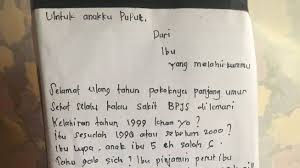 Untuk anakku Puput.
Dari
Ibu
yang melahirkanmu
Selamat ulang tahun pokoknya panjang umur
Sehat selalu kalau sakit BPJS dilemari
Kelahiran tahun 1999 khan yo ?
itu sesudah 1998 atau sebelum 2000 ?
Ibu lupa, anak ibu 5 eh salah 6
polo sich ? Ibu pinjamin perut ibu